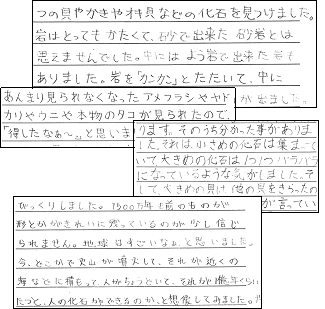 つの貝やかきやオオノ貝などの化石を見つけました。
岩はとてもかたくて、砂で出来た砂岩とは
思えませんでした。中にはよう岩で出来た岩も
ありました。岩を「カンカン」とたたいて、中に
が出ました。
あんまり見られなくなったアメフラシやヤド
カリやウニや本物のタコが見られたので、
「得したなぁ〜。」と思いま
ります。そのうち分かった事がありま
した。それは、小さめの化石は集まって
いて、大きめの化石は1つ1つバラバラ
になっているような気がしました。そし
て、大きめの貝は他の貝をきらったの
が言ってい
びっくりしました。1500万年も前のものが
形とかがきれいに残っているのが少し信じ
られません。地球はすごいなぁと思いました。
今、どこかで火山が噴火して、それが近くの
海などに積もって、人がちょっといて、それが1億年くらい
たつと、人の化石ができるのか、と想像してみました。